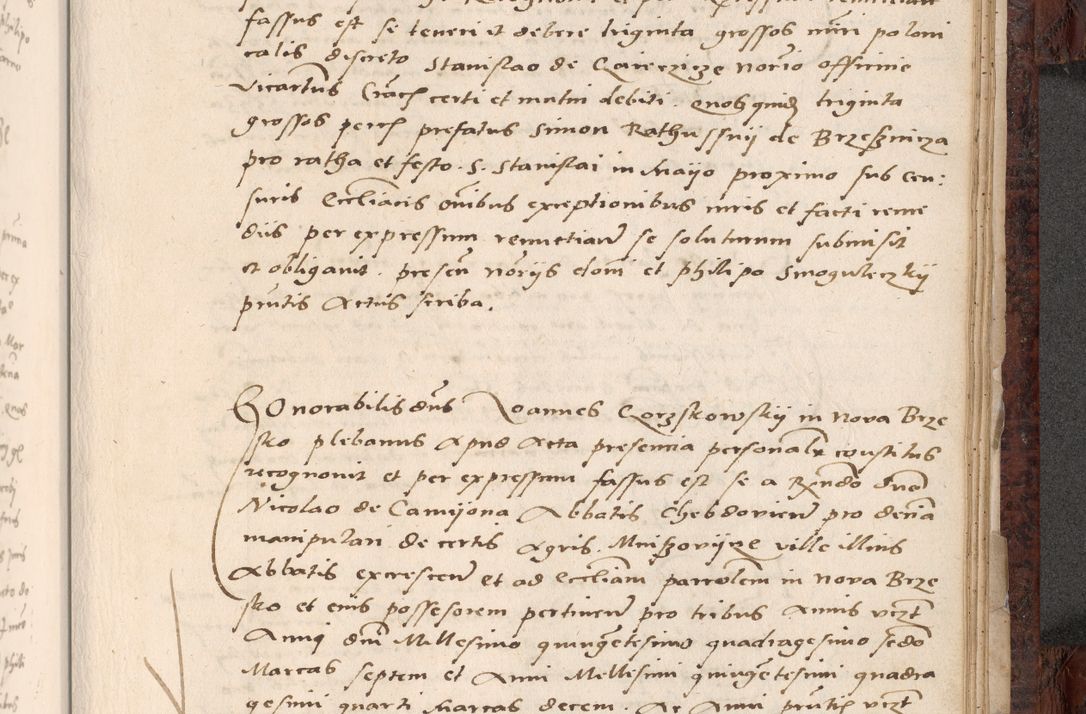 fassus est se teneri et debere triginta grossos mri poloni
calis discreto Stanislao de norio officiuie
vicartus Crach certi et mutui debiti. quos quidz triginta
grossos perch prefatus Simon Rathussnij de Brzesznicza
pro ratha et festo. S. Stanislai in Mayo proximo sub cen:
suris Eccliacis omibus exceptionibus iuris et facti reme
diis per expressum renuctiaud se soluturum submisit
et obligavit. presen noriis domi et philipo Smoguleczkij
pntis Actus scriba.
HOnorabilis dns Joannes Gorzskowskij in Nova Brze
sko plebanus Apud Acta presencia personalr constitus
recognovit et per expressum fassus est se a Rendo dno
Nicolao de Camijona Abbatis Chebdovien pro decia
manipulari de certis Agris. ville illius
Abbatis excrescen et ad Eccliam parrolem in Nova Brze
sko et eius possesorem pertinen pro tribus Annis vczt
Anni dni Millesimo quingetesimo quadragesimo scdo
Marcas septem et Anni Millesimi quingetesimi quadra
gesimi quarti Marcas decem. Ac Anni pntis vczt